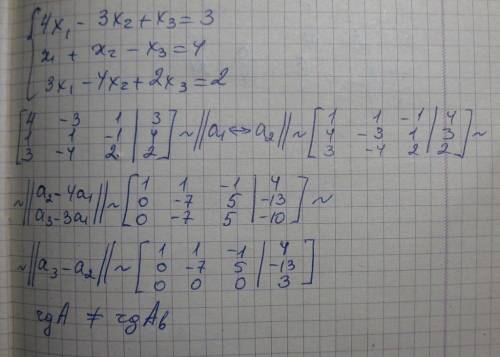 4x₁ - 3x₂ + x₃ = 3
x₁ + x₂ - x₃ = 4
3x₁ - 4x₂ + 2x₃ = 2
[4 -3 1 | 3; 1 1 -1 | 4; 3 -4 2 | 2] ~ ||a₁ ↔ a₂|| ~ [1 1 -1 | 4; 4 -3 1 | 3; 3 -4 2 | 2] ~
~ ||a₂ - 4a₁; a₃ - 3a₁|| ~ [1 1 -1 | 4; 0 -7 5 | -13; 0 -7 5 | -10] ~
~ ||a₃ - a₂|| ~ [1 1 -1 | 4; 0 -7 5 | -13; 0 0 0 | 3]
rgA ≠ rgAb